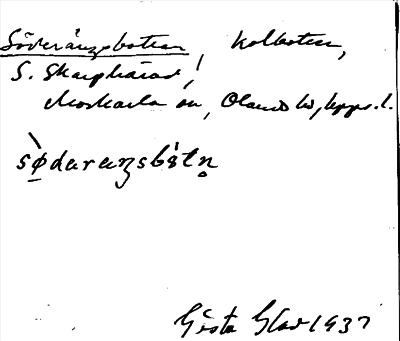 Söderängsbotten, Kolbotten,
S. Skarphärad,
Morkarla sn, Olands hd, Uppl.
sø̀daraŋsbåtn̥
Gösta Glad 1937